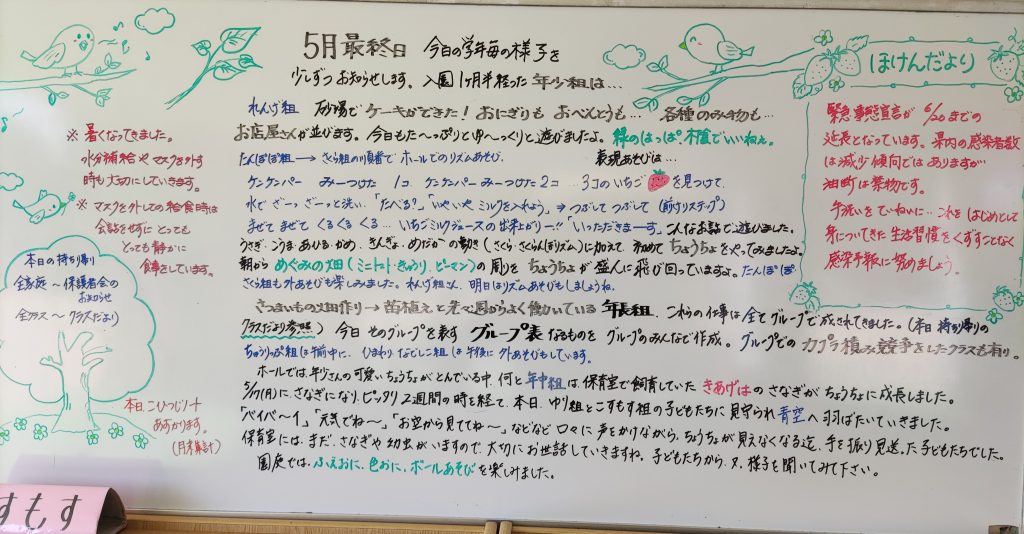 5月最終日 今日の学年毎の様子を
少しずつお知らせします。入園1ヶ月半経った年少組は…
れんげ組 砂場でケーキができた！おにぎりも おべんとうも… 各種のみ物も…
お店屋さんが並びます。今日もた〜っぷりとゆ〜っくりと遊びましたよ。緑のはっぱ。木陰でいいねぇ。
たんぽぽ組→さくら組の順番でホールでのリズムあそび。 表現あそびは…
ケンケンパー みーつけた 1コ ケンケンパー みーつけた 2コ …3コのいちごを見つけて、
水でざーっ ざーっと洗い、「たべる？」「いやいや ミルクを入れよう」→つぶして つぶして（前寸リステップ）
まぜて まぜて くるくるくる…いちごミルクジュースの出来上がりー!!「いっただきまーす」こんなお話で遊びました。
うさぎ・こうま・あひる・かめ・きんぎょ・めだかの動き（さくら・さくらんぼリズム）に加えて、初めてちょうちょをやってみましたよ。
朝からめぐみの畑（ミニトマト・きゅうり・ピーマン）の周りをちょうちょが盛んに飛び回っていますよ。たんぽぽ
さくら組も外あそびも楽しみました。れんげ組さん、明日はリズムあそびもしましょうね。
さつまいもの畑作り→苗植えと先週からよく働いている年長組。これらの仕事は全てグループで成されてきました。（本日持ち帰りの
クラスだより参照）今日そのグループを表すグループ表なるものをグループのみんなで作成。グループでのカプラ積み競争をしたクラスも有り。
ちゅうりっぷ組は午前中に、ひまわり なでしこ組は午後に外あそびもしています。
ホールでは、年少さんの可愛いちょうちょがとんでいる中、何と年中組は、保育室で飼育していたきあげはのさなぎがちょうちょに成長しました。
5/17(月)に、さなぎになり、ピッタリ2週間の時を経て、本日、ゆり組とこすもす組の子どもたちに見守られ青空へ羽ばたいていきました。
「バイバーイ」「元気でね〜」「お空から見ててね〜」などなど口々に声をかけながら、ちょうちょが見えなくなる迄、手を振り見送った子どもたちでした。
保育室には、まだ、さなぎや幼虫がいますので、大切にお世話していきますね。子どもたちから、又、様子を聞いてみて下さい。
園庭では、ふえおに、色おに、ボールあそびを楽しみました。
※暑くなってきました。
水分補給やマスクを外す
時も大切にしていきます。
※マスクを外しての給食時は
会話をせずに とっても
とっても静かに
食事をしています。
本日の持ち帰り
全家庭〜保護者会の
お知らせ
全クラス〜クラスだより
本日、こひつじノート
あずかります。
（月末集計）
ほけんだより
緊急事態宣言が 6/20までの
延長となっています。県内の感染者数
は減少傾向ではありますが
油断は禁物です。
手洗いをていねいに…これをはじめとして
身についてきた生活習慣をくずすことなく
感染予報に努めましょう。
すもす